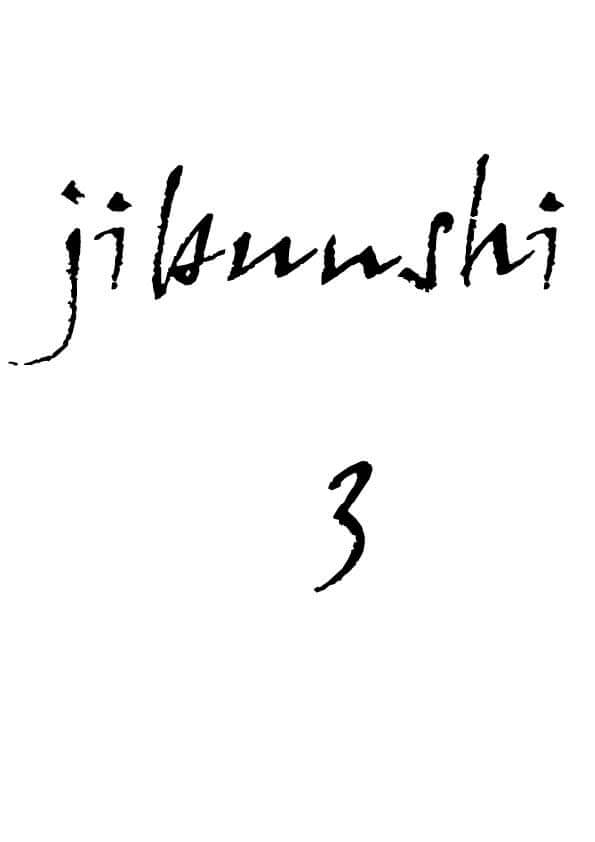 jikunshi
3